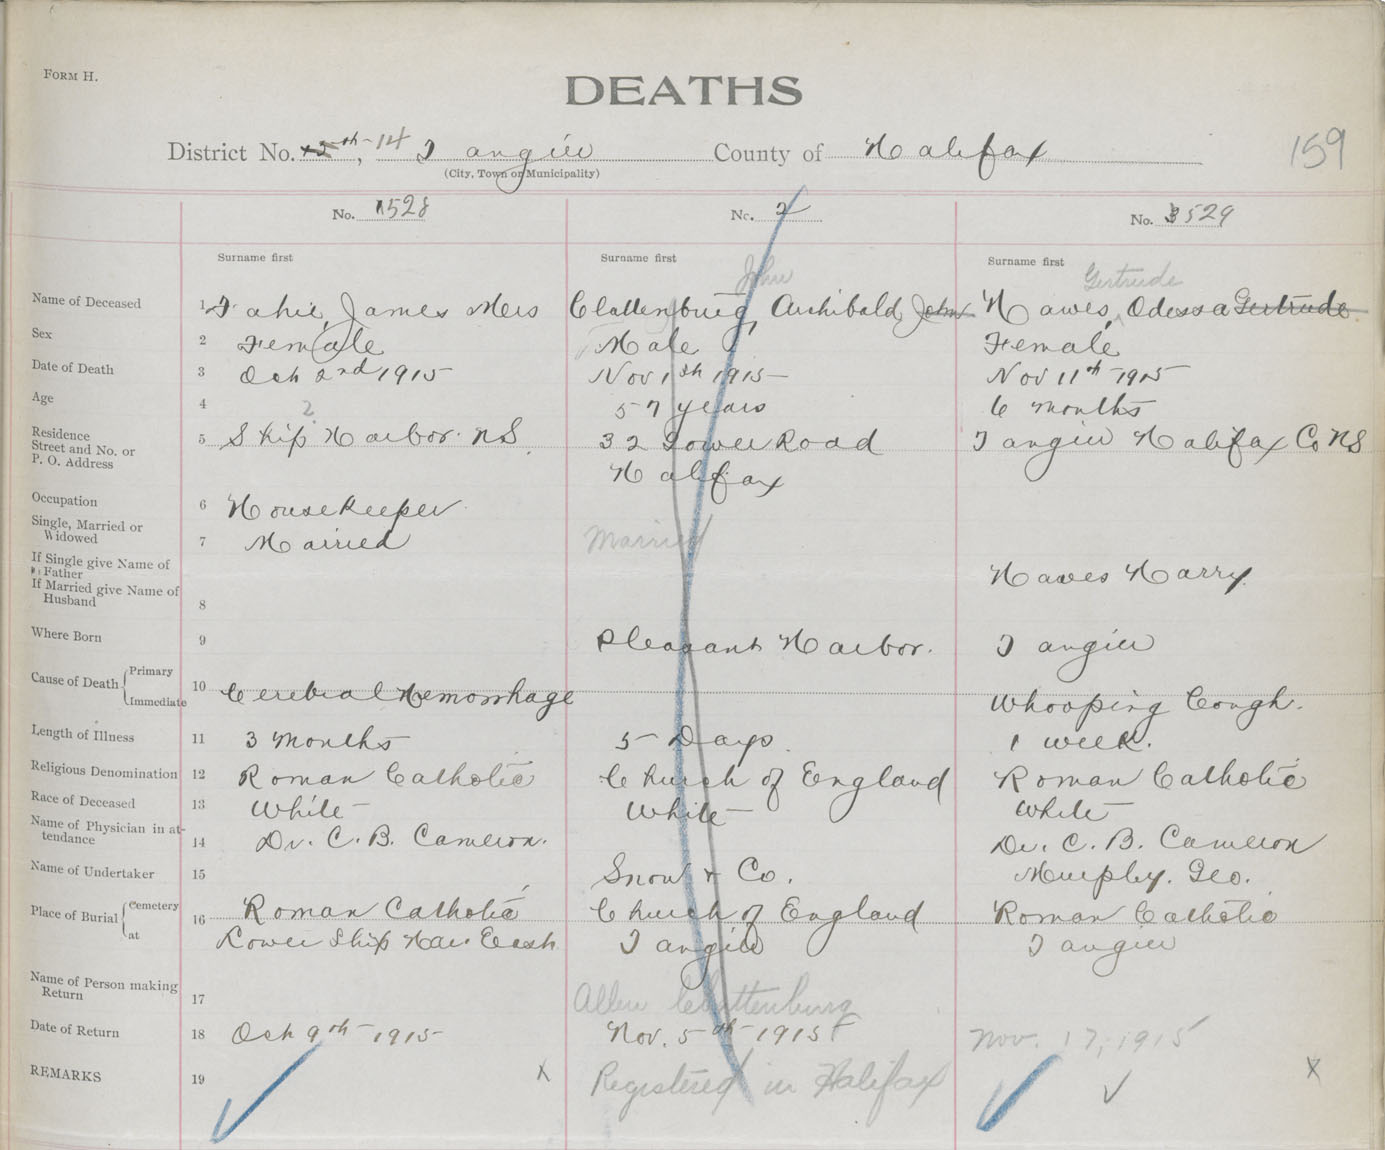 FORM H.
DEATHS
District No. 12th, 14 Tangier County of Halifax 159
(City, Town or Municipality)
No. 1528 No. 2 No. 3529
Surname first Surname first Surname first
John Gertrude
Name of Deceased 1 Fahie, James Mrs Clattenburg, Archibald John Hawes, Odessa Gertrude
Sex 2 Female Male Female
Date of Death 3 Oct 2nd 1915 Nov 1st 1915 Nov 11th 1915
Age 4 2 57 years 6 Months
Residence Street and No. or P. O. Address 5 Ship Harbor. NS. 32 Tower Road Tangier Halifax Co NS
Halifax
Occupation 6 Housekeeper
Single, Married or Widowed 7 Married Married
If Single give Name of Father Hawes Harry
If Married give Name of Husband 8
Where Born 9 Pleasant Harbor. Tangier
Cause of Death { Primary Immediate 10 Cerebral Hemorrhage Whooping Cough.
Length of Illness 11 3 Months 5 Days. 1 week.
Religious Denomination 12 Roman Catholic Church of England Roman Catholic
Race of Deceased 13 White White White
Name of Physician in attendance 14 Dr. C. B. Cameron. Dr. C. B. Cameron
Name of Undertaker 15 Snow & Co. Murphy. Geo.
Place of Burial { Cemetery at 16 Roman Catholic Church of England Roman Catholic
Lower Ship Har. East Tangier Tangier
Name of Person making Return 17 Allen Clattenburg
Date of Return 18 Oct 9th 1915 Nov. 5th 1915 Nov. 17, 1915
REMARKS 19 X Registered in Halifax X